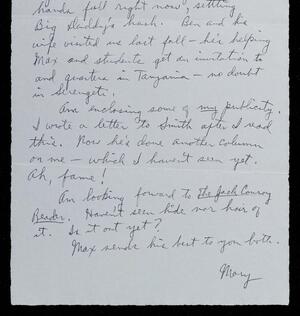 hands full right now, settling
Big Daddy's hash. Ben and his
wife visited us last fall – he's helping
Max and students get an invitation to
and quarters in Tanzania – no doubt
in Serengeti.
Am enclosing some of my publicity.
I wrote a letter to Smith after I read
this. Now he's done another column
on me – which I haven't seen yet.
Ah, fame!
Am looking forward to The Jack Conroy
Reader. Haven't seen hide nor hair of
it. Is it out yet?
Max sends his best to you both.
Mary